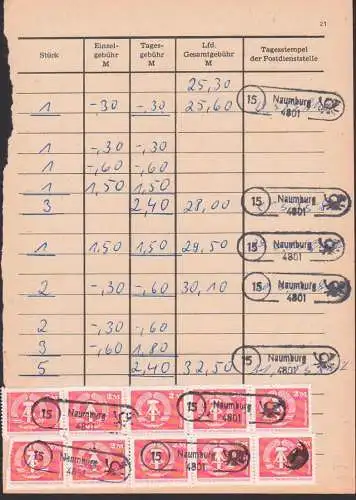 21
Stück Einzel-gebühr M Tages-gebühr M Lfd. Gesamtgebühr M Tagesstempel der Postdienststelle
25,30
1 -,30 -,30 25,60 15 Naumburg 4801
1 -,30 -,30
1 -,60 -,60
1 1,50 1,50
3 2,40 28,00 15 Naumburg 4801
1 1,50 1,50 29,50 15 Naumburg 4801
2 -,30 -,60 30,10 15 Naumburg 4801
2 -,30 -,60
3 -,60 1,80
5 2,40 32,50 15 Naumburg 4801
2M 2M 2M 2M 2M
15 Naumburg 4801 15 Naumburg 4801
2M 2M 2M 2M 2M
15 Naumburg 4801 15 Naumburg 4801